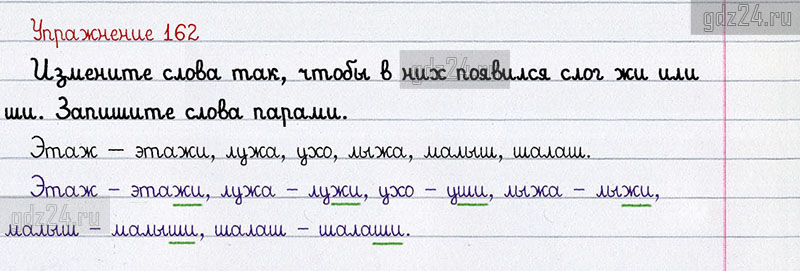 gdz24.ru
Упражнение 162
Измените слова так, чтобы в них появился слог жи или
gdz24.ru
ши. Запишите слова парами.
Этаж – этажи, лужа, ухо, лыжа, малыш, шалаш.
Этаж – этажи, лужа – лужи, ухо – уши, лыжа – лыжи,
gdz24.ru
малыш – малыши, шалаш – шалаши.